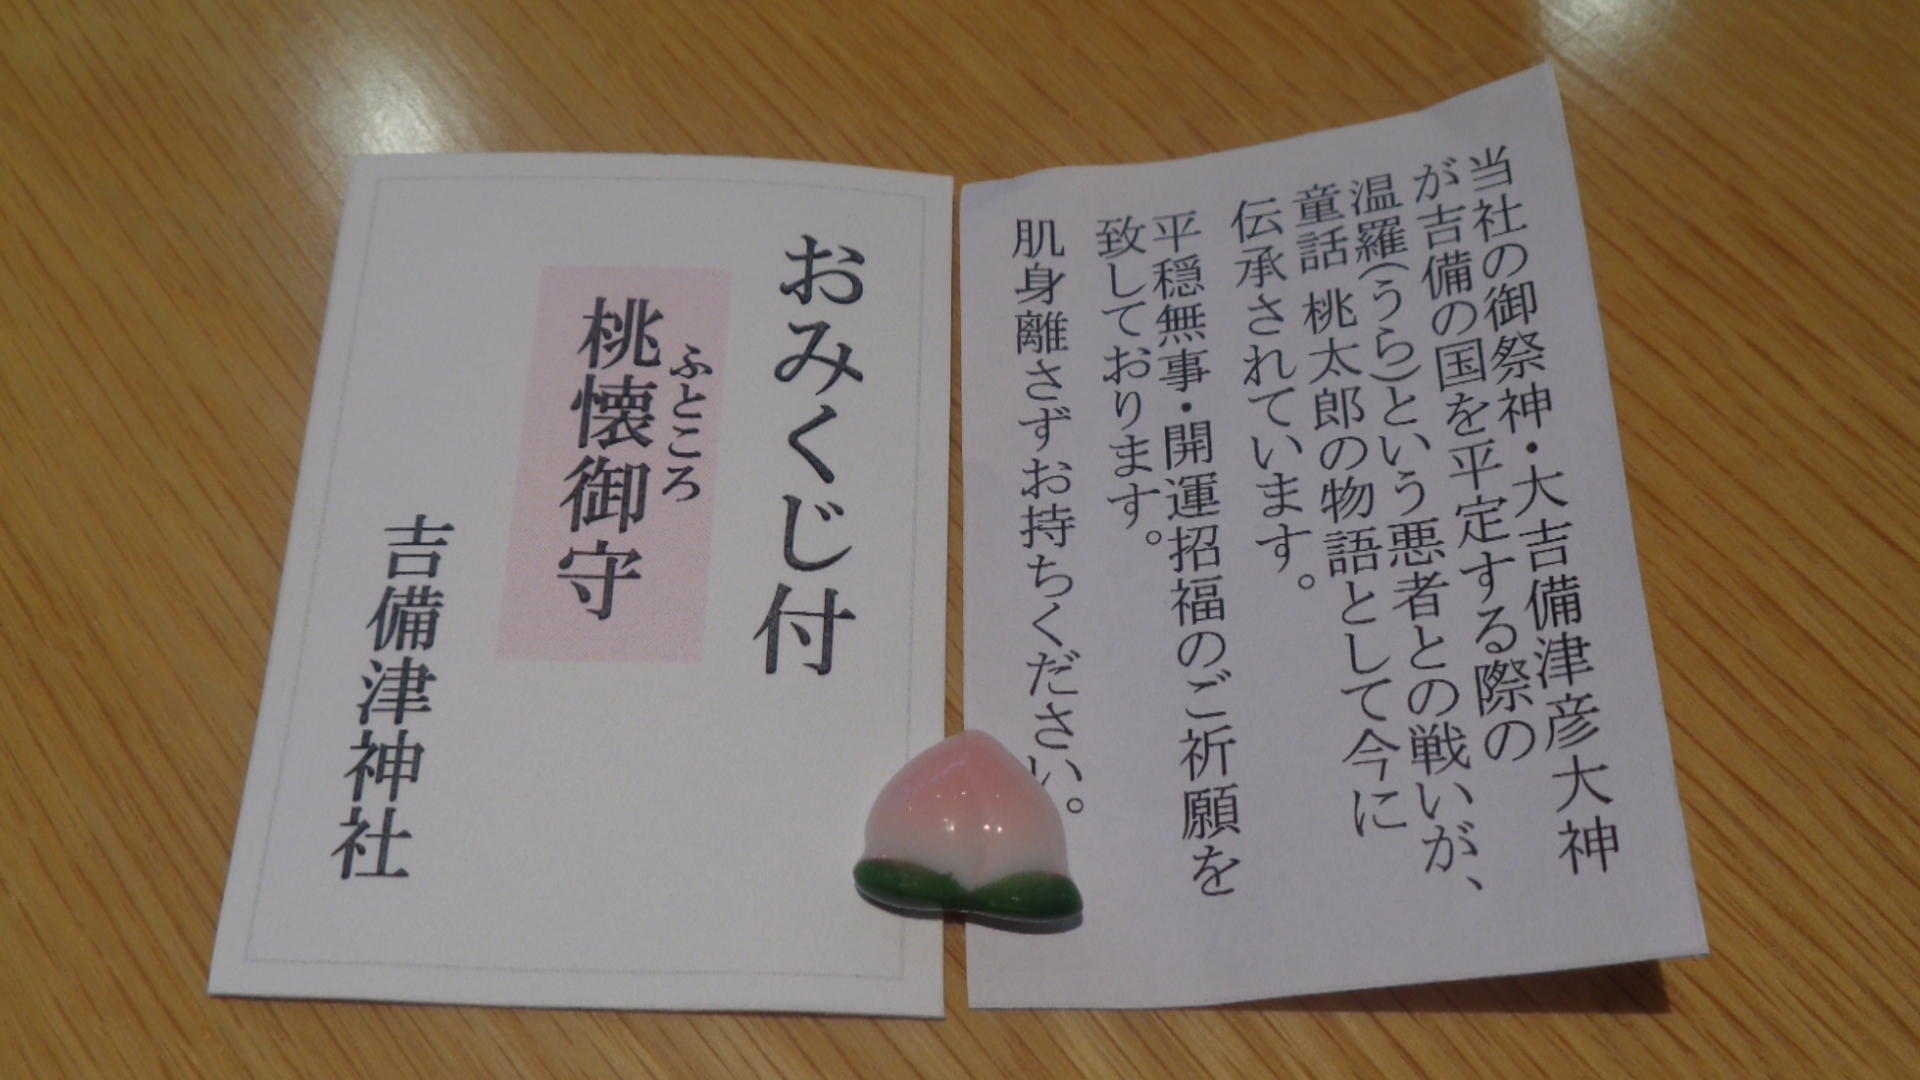 おみくじ付
ふところ
桃懐御守
吉備津神社
当社の御祭神・大吉備津彦大神
が吉備の国を平定する際の
温羅(うら)という悪者との戦いが、
童話 桃太郎の物語として今に
伝承されています。
平穏無事・開運招福のご祈願を
致しております。
肌身離さずお持ちください。